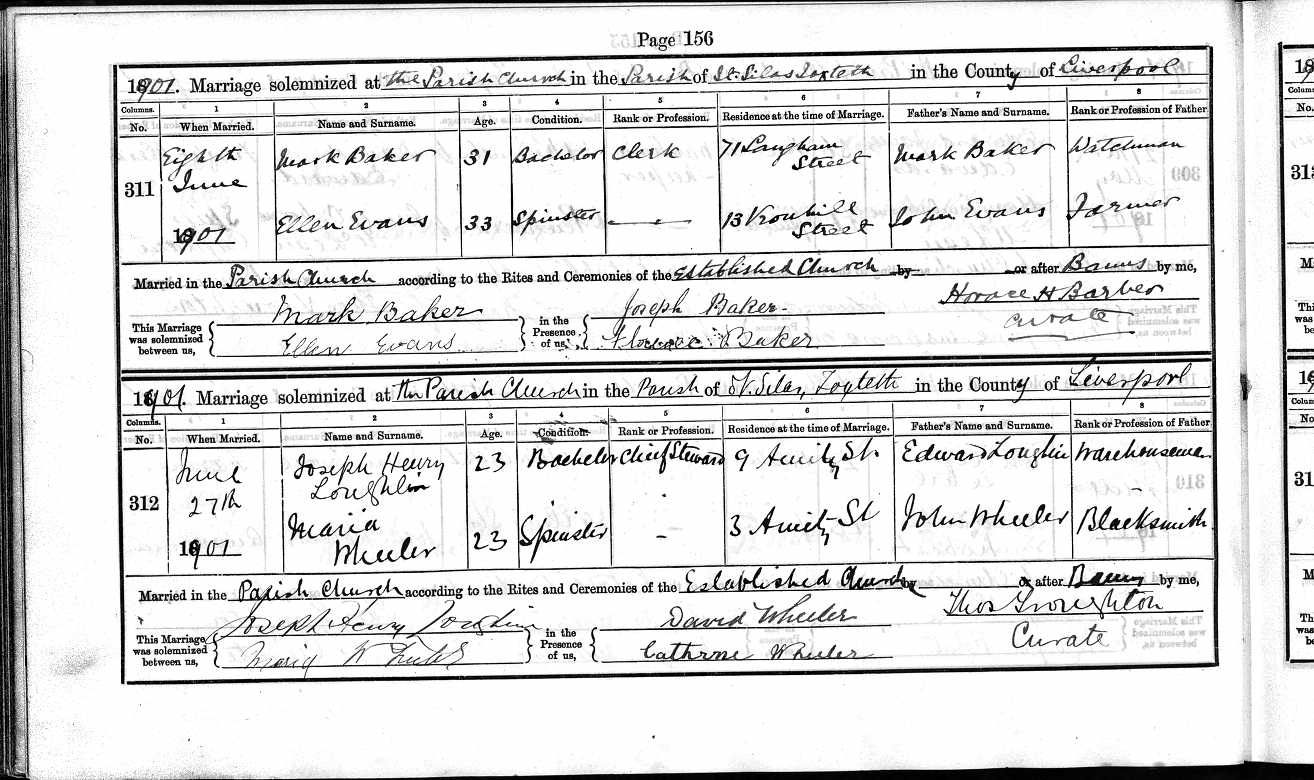 Page 156
1901. Marriage solemnized at the Parish Church in the Parish of St. Silas Toxteth in the County of Liverpool
Columns. 1 2 3 4 5 6 7 8
No. When Married. Name and Surname. Age. Condition. Rank or Profession. Residence at the time of Marriage. Father's Name and Surname. Rank or Profession of Father
311 Eighth June 1901 Mark Baker 31 Bachelor Clerk 71 Langham Street Mark Baker Watchman
Ellen Evans 33 Spinster — 13 Street John Evans Farmer
Married in the Parish Church according to the Rites and Ceremonies of the Established Church by or after Banns by me,
This Marriage was solemnized between us, Mark Baker in the Presence of us, Joseph Baker Horace H Barber
Ellen Evans Florence Baker Curate
1901. Marriage solemnized at the Parish Church in the Parish of St. Silas, Toxteth in the County of Liverpool
Columns. 1 2 3 4 5 6 7 8
No. When Married. Name and Surname. Age. Condition. Rank or Profession. Residence at the time of Marriage. Father's Name and Surname. Rank or Profession of Father
312 June 27th 1901 Joseph Henry Loughlin 23 Bachelor Chief Steward 9 Amity St. Edward Loughlin Warehouseman
Maria Wheeler 23 Spinster - 3 Amity St John Wheeler Blacksmith
Married in the Parish Church according to the Rites and Ceremonies of the Established Church by or after Banns by me,
This Marriage was solemnized between us, Joseph Henry Loughlin in the Presence of us, David Wheeler Thos Troughton
Maria Wheeler Cathrne Wheeler Curate